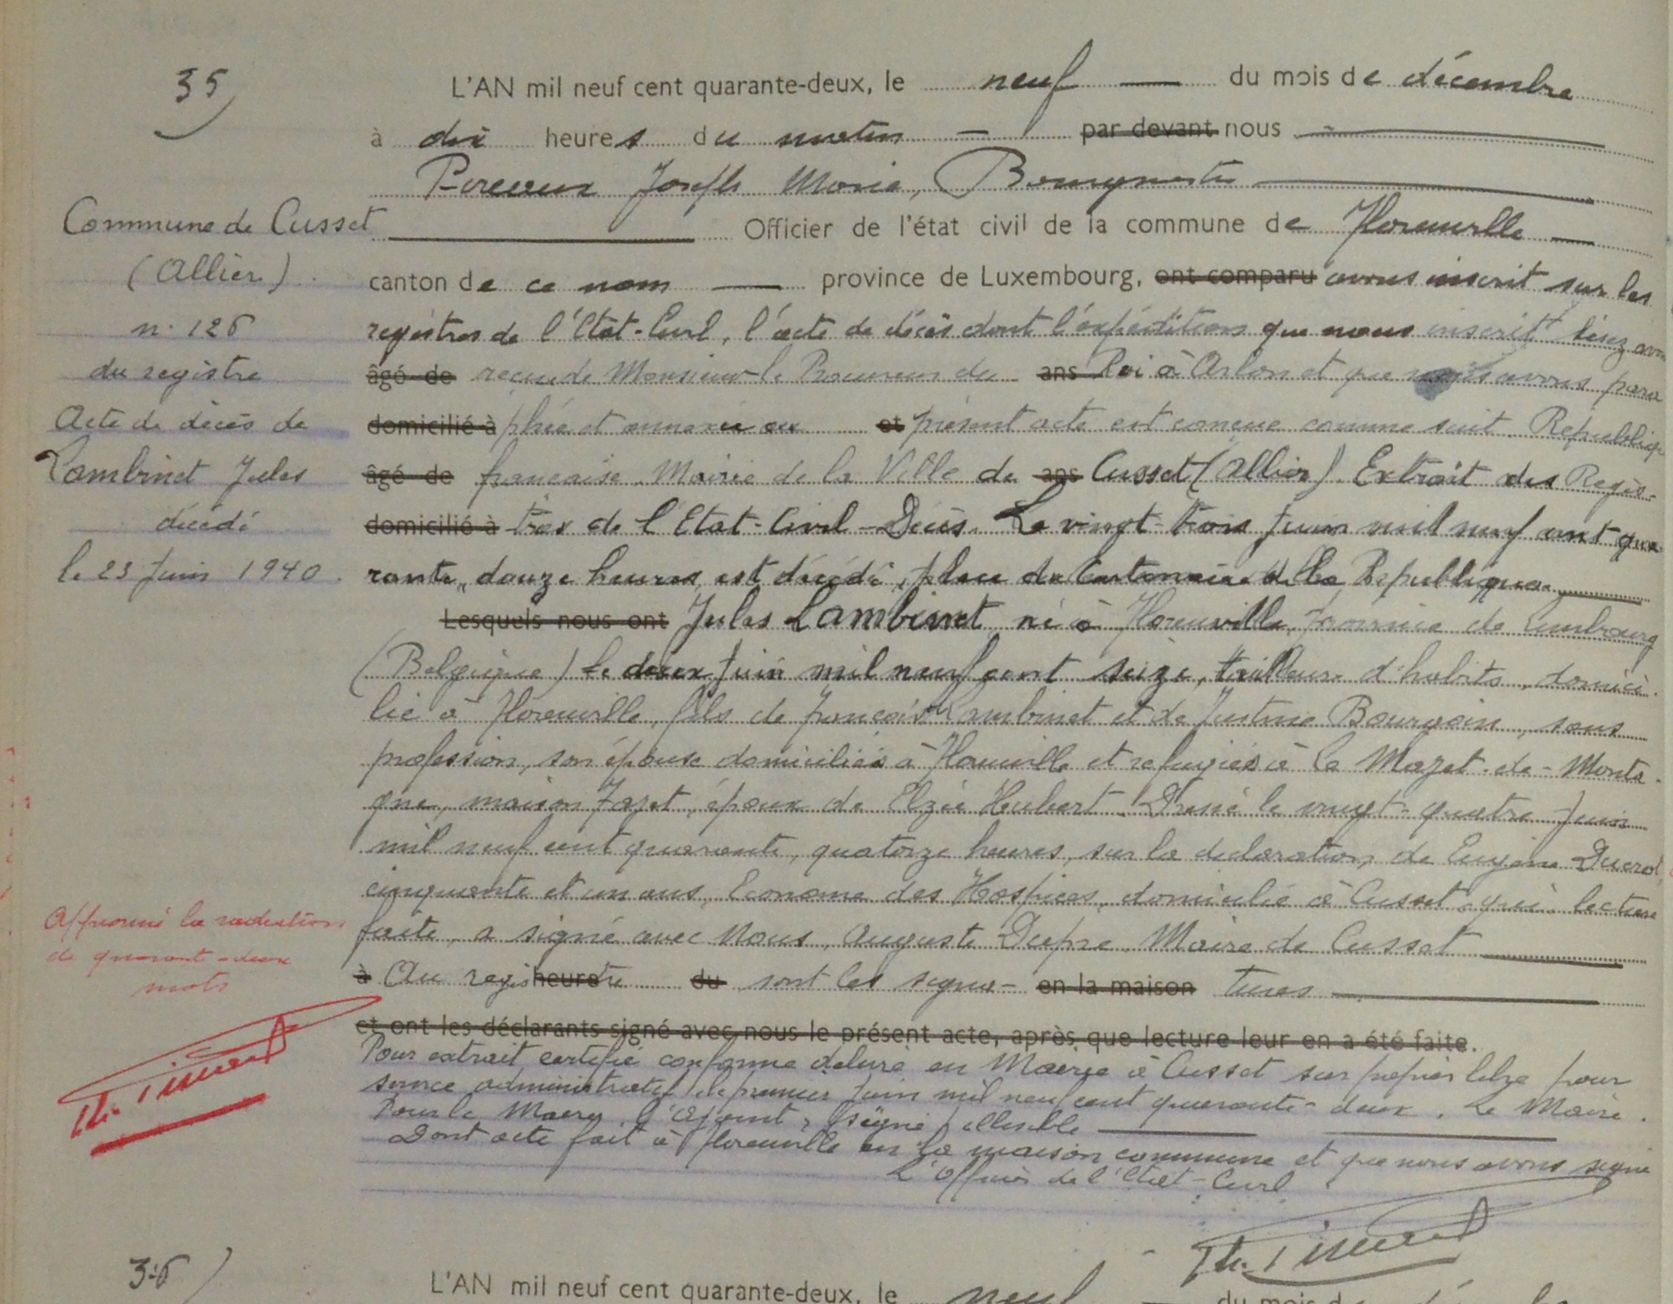 35
L'AN mil neuf cent quarante-deux, le neuf — du mois de décembre
à dix heures du matin — par devant nous —
Joseph Marie, Bourgmestre —
Commune de Cusset
Officier de l'état civil de la commune de Florenville —
(Allier)
canton de ce nom — province de Luxembourg, ont comparu avons inscrit sur les
n° 126
registres de l'Etat-Civil, l'acte de décès dont l'expédition que nous inscrit lisez avons
du registre
âgé de reçue de Monsieur le Procureur du ans Roi à Arlon et que nous avons para
Acte de décès de
domicilié à phée et annexée au et présent acte est conçue comme suit. République
Lambinet Jules
âgé de française. Mairie de la Ville de ans Cusset (Allier). Extrait des Regis-
décédé
domicilié à tres de l'Etat-Civil - Décès. Le vingt-trois Juin mil neuf cent qua-
le 23 Juin 1940.
rante, douze heures, est décédé, place du Centenaire de la République.
Lesquels nous ont Jules Lambinet né à Florenville, Province de Luxbourg
(Belgique) le deux Juin mil neuf cent seize, tailleur d'habits, domici-
lié à Florenville, fils de François Lambinet et de Justine Bourgoin, sans
profession, son épouse domiciliés à Florenville et refugiés à la Mazet-de-Monta-
gne, maison Jazet, époux de Elzée Hubert. Dressé le vingt-quatre Juin
mil neuf cent quarante, quatorze heures, sur la déclaration de Eugène Ducrot,
cinquante et un ans, Econome des Hospices, domicilié à Cusset, qui lecture
faite, a signé avec Nous, Auguste Dupre, Maire de Cusset
Approuvé la radiation
de quarant-deux
mots
à Au regis heure tre du sont les signa- en la maison tures
et ont les déclarants signé avec nous le présent acte, après que lecture leur en a été faite.
Pour extrait certifié conforme délivré en Mairie à Cusset sur papier libre pour
service administratif, le premier Juin mil neuf cent quarante-deux. Le Maire.
Pour le Maire, l'adjoint, signé illisible
Dont acte fait à Florenville en la maison commune et que nous avons signé
L'Officier de l'Etat-Civil
36
L'AN mil neuf cent quarante-deux, le neuf — du mois de